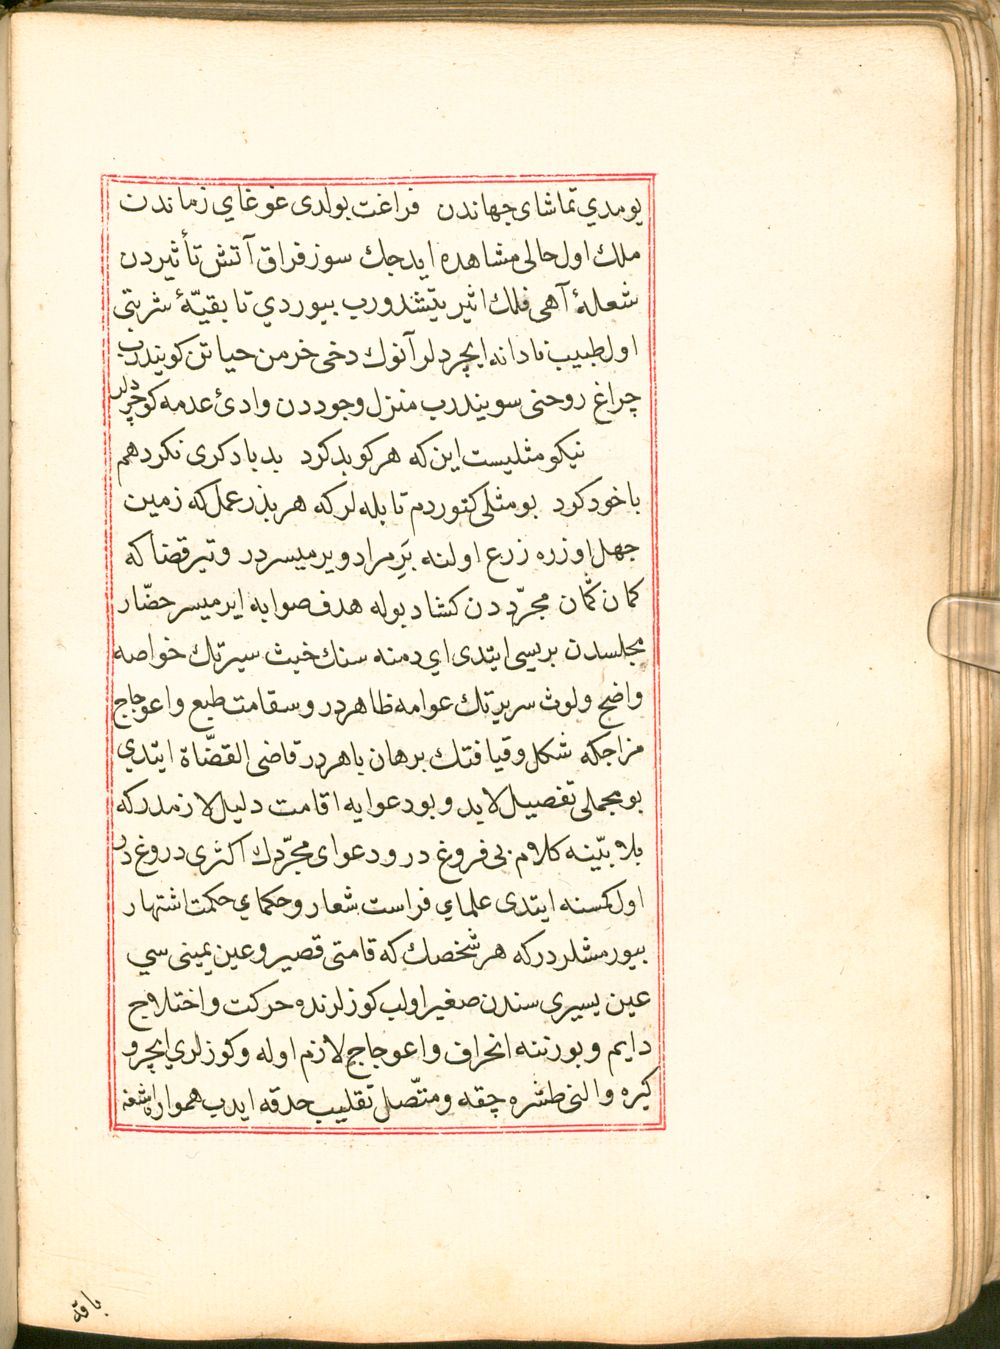 يومدي تماشای جهاندن فراغت بولدی غوغاي زماندن
ملك اول حالی مشاهده ايدجك سوز فراق آتش تأثيردن
شعلۀ آهی فلك اثير يتشدورب بيوردي تا بقيّۀ شربتی
اول طبيب نادانه ايچردلر آنوك دخی خرمن حياتن كويندرب
چراغ روحنی سويندرب منزل وجوددن وادئ عدمه كوچردلر
نيكو مثليست اين كه هركو بد كرد بد باد كری نكرد هم
با خود كرد بو مثلی كتوردم تا بله لر كه هر بذر عمل كه زمين
جهل اوزره زرع اولنه بَرِ مراد ويرميسردر و تير قضا كه
كمان كمان مجرّددن كشاد بوله هدف صوابه ايرميسر حضّار
مجلسدن بريسی ايتدی اي دمنه سنك خبث سيرتك خواصه
واضح ولوث سريرتك عوامه ظاهردر وسقامت طبع واعوجاج
مزاجكه شكل وقيافتك برهان باهردر قاضی القضّاة ايتدي
بو مجملی تفصيل لابد وبو دعوايه اقامت دليل لازمدركه
بلا بيّنه كلام بی فروغ در ودعوای مجرّدك اكثری دروغ در
اول كسنه ايتدی علماي فراست شعار وحكماي حكمت اشتهار
بيورمشلردركه هر شخصك كه قامتی قصير وعين يمينی سي
عين يسيری سندن صغير اولب كوزلرنده حركت واختلاج
دايم وبورننه انحراف واعوجاج لازم اوله وكوزلري ايچرو
كيره والنی طشره چقه ومتّصل تقليب حدقه ايدب همواره اشغه
باقه